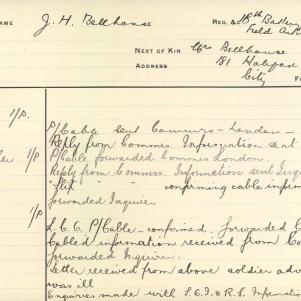 NAME J. H. Bellhouse REG. & C 18th Battery
Field Art
NEXT OF KIN Mrs Bellhouse
ADDRESS 181 Halifax
City
1/P. P/Cable sent Commrs - London -
Reply from Commrs. Information sent
1/P. P/Cable forwarded Commrs London.
Reply from Commrs. Information sent Inqu
" " confirming cable inform
Forwarded Inquirer
1/P P/Cable - confirmed. Forwarded
Cabled information received from Co
Forwarded Inquirer.
Letter received from above soldier adv
was ill
Enquiries made with S.G.I.O R.S. Information